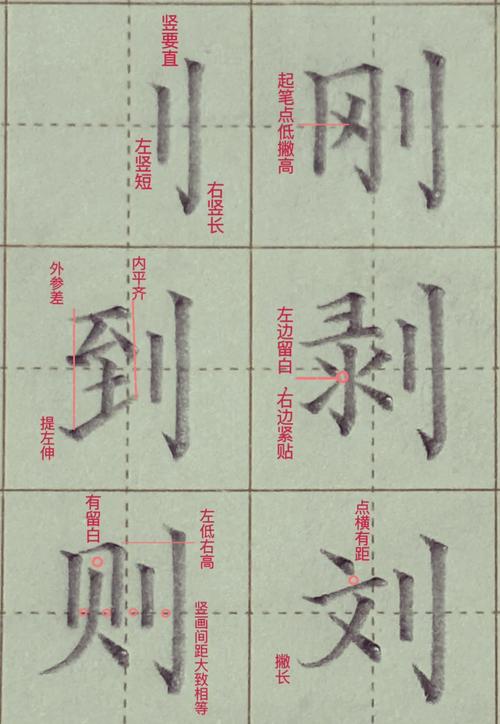 竖要直
刂
左竖短
右竖长
刚
起笔点低撇高
到
外参差
内平齐
提左伸
剥
左边留白，右边紧贴
则
有留白
左低右高
竖画间距大致相等
刘
点横有距
撇长